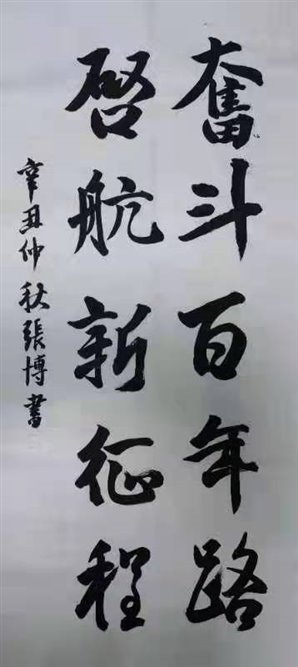 奮斗百年路
啓航新征程
辛丑仲秋張博書